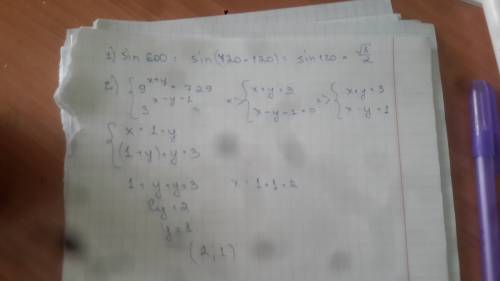 1) sin 600 = sin(720-120) = sin120 = √3/2
2) { 9^(x+y) = 729 => { x+y=3 => { x+y=3
3^(x-y-1) = x-y-1=0 x-y=1
{ x = 1+y
(1+y)+y=3
1+y+y=3 x=1+1=2
2y=2
y=1
(2;1)